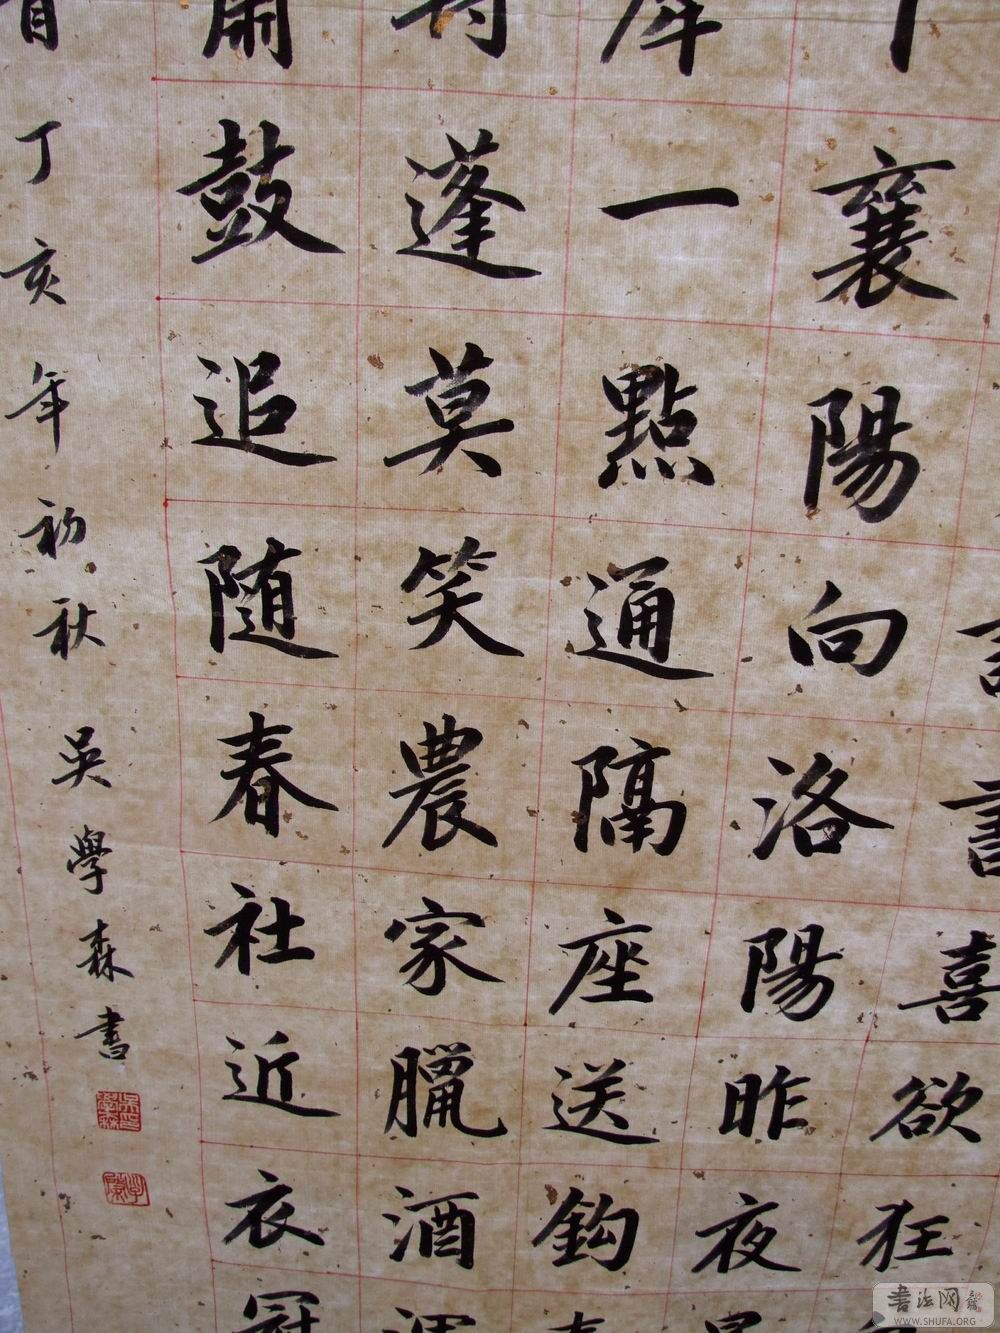 喜欲狂
襄陽向洛陽昨夜
一點通隔座送鈎
蓬莫笑農家臘酒
鼓追随春社近衣冠
丁亥年初秋吳學森書
書法网
WWW.SHUFA.ORG